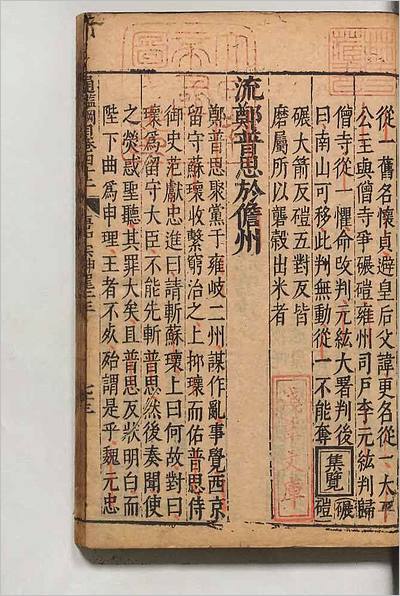 從一舊名懷貞避皇后父諱更名從一太平
公主與僧寺爭碾磑雍州司戶李元紘判歸
僧寺從一懼命攺判元紘大署判後
曰南山可移此判無動從一不能奪
集覽
碾
磑
碾大箭反磑五對反皆
磨屬所以礱縠出米者
流鄭普思於儋州
鄭普思聚黨于雍岐二州謀作亂事覺西京
留守蘇瓌收繫窮治之上抑瓌而佑普思侍
御史范獻忠進曰請斬蘇瓌上曰何故對曰
瓌為留守大臣不能先斬普思然後奏聞使
之熒惑聖聽其罪大矣且普思反狀明白而
陛下曲為申理王者不死殆謂是乎魏元忠
通鑑綱目卷四十二
淺草文庫